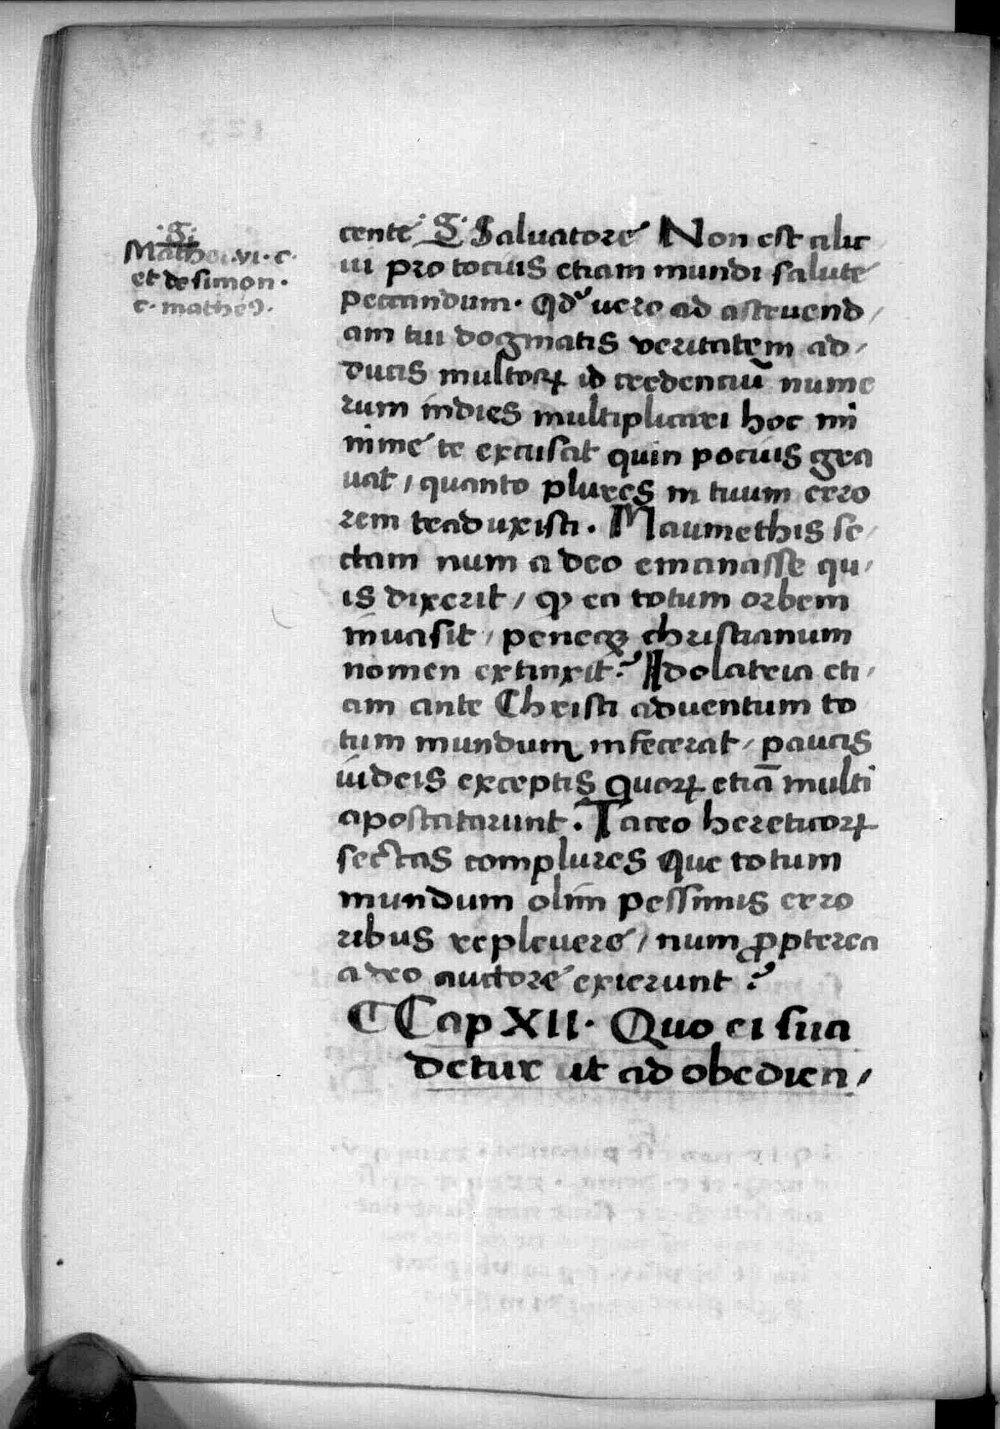 .S.
Mathei.vi.c.
et de simon.
c. matheꝰ.
cente .S. Salvatore Non est alic
ui pro tocius etiam mundi salute
peccandum. Qd' uero ad astruend/
am tui dogmatis veritatem ad/
ducis multoꝝ id credenciū nume
rum indies multiplicari hoc mi
nime te excusat quin pocius gra
uat / quanto plures in tuum erro
rem traduxisti. Maumethis se/
ctam num a deo emanasse qu/
is dixerit / ꝙ ea totum orbem
inuasit / peneqꝫ christianum
nomen extinxit? Idolatria eti/
am ante Christi aduentum to
tum mundum infecerat / paucis
iudeis exceptis quoꝝ etiā multi
apostatarunt. Taceo hereticoꝝ
sectas complures que totum
mundum olim pessimis erro
ribus repleuere / num ꝓpterea
a deo auctore exierunt?
Cap XII. Quo ei sua
detur ut ad obedien/